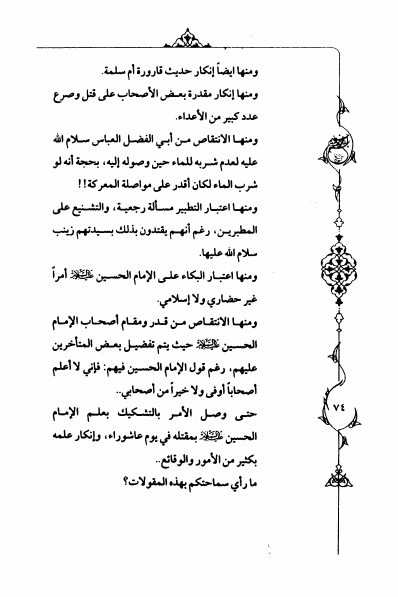 ومنها ايضاً إنكار حديث قارورة أم سلمة.
ومنها إنكار مقدرة بعض الأصحاب على قتل وصرع
عدد كبير من الأعداء.
ومنها الانتقاص من أبي الفضل العباس سلام الله
عليه لعدم شربه للماء حين وصوله إليه، بحجة أنه لو
شرب الماء لكان أقدر على مواصلة المعركة!!
ومنها اعتبار التطبير مسألة رجعية، والتشنيع على
المطبرين، رغم أنهم يقتدون بذلك بسيدتهم زينب
سلام الله عليها.
ومنها اعتبار البكاء على الإمام الحسين عليه السلام أمراً
غير حضاري ولا إسلامي.
ومنها الانتقاص من قدر ومقام أصحاب الإمام
الحسين عليه السلام حيث يتم تفضيل بعض المتأخرين
عليهم، رغم قول الإمام الحسين فيهم: فإني لا أعلم
أصحاباً أوفى ولا خيراً من أصحابي..
حتى وصل الأمر بالتشكيك بعلم الإمام
الحسين عليه السلام بمقتله في يوم عاشوراء، وإنكار علمه
بكثير من الأمور والوقائع..
ما رأي سماحتكم بهذه المقولات؟
٧٤